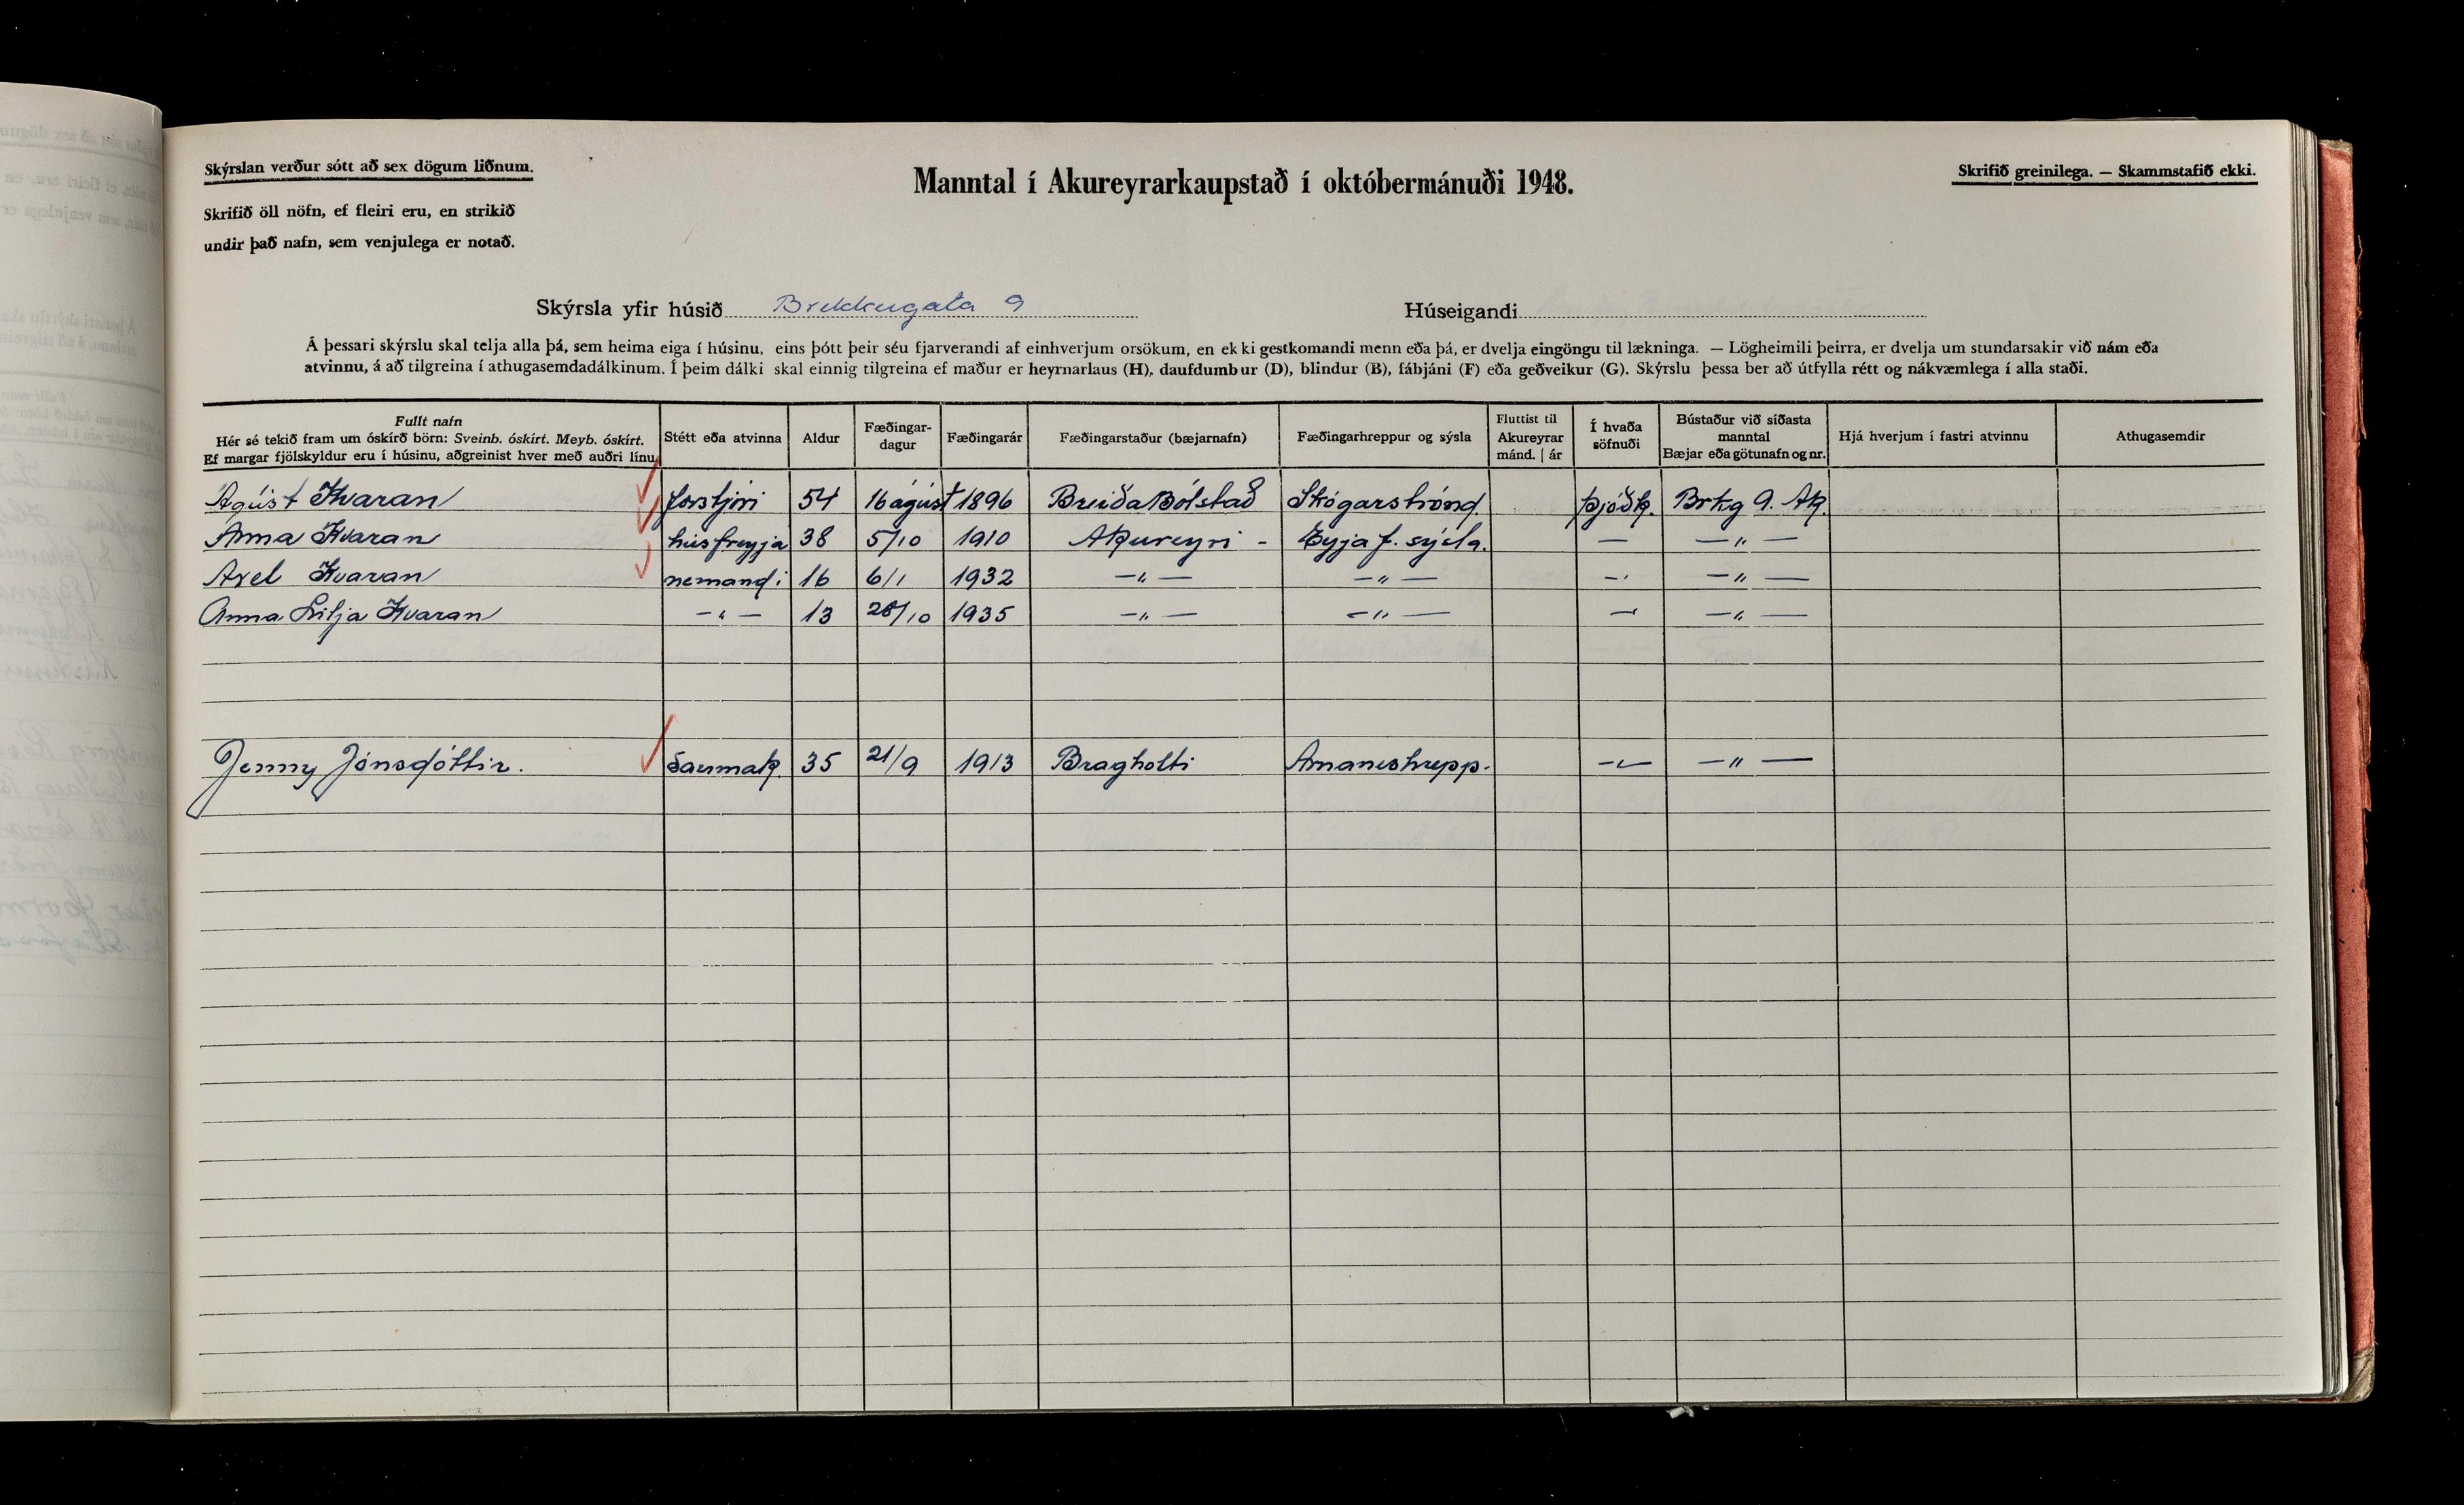 Skýrslan verður sótt að sex dögum liðnum.
Skrifið öll nöfn, ef fleiri eru, en strikið
undir það nafn, sem venjulega er notað.
Manntal í Akureyrarkaupstað í októbermánuði 1948.
Skrifið greinilega. — Skammstafið ekki.
Skýrsla yfir húsið Brekkugata 9 Húseigandi
Á þessari skýrslu skal telja alla þá, sem heima eiga í húsinu, eins þótt þeir séu fjarverandi af einhverjum orsökum, en ekki gestkomandi menn eða þá, er dvelja eingöngu til lækninga. — Lögheimili þeirra, er dvelja um stundarsakir við nám eða
atvinnu, á að tilgreina í athugasemdadálkinum. Í þeim dálki skal einnig tilgreina ef maður er heyrnarlaus (H), daufdumbur (D), blindur (B), fábjáni (F) eða geðveikur (G). Skýrslu þessa ber að útfylla rétt og nákvæmlega í alla staði.
Fullt nafn
Hér sé tekið fram um óskírð börn: Sveinb. óskírt. Meyb. óskírt.
Ef margar fjölskyldur eru í húsinu, aðgreinist hver með auðri línu.
Stétt eða atvinna
Aldur
Fæðingar-
dagur
Fæðingarár
Fæðingarstaður (bæjarnafn)
Fæðingarhreppur og sýsla
Fluttist til
Akureyrar
mánd. | ár
Í hvaða
söfnuði
Bústaður við síðasta
manntal
Bæjar eða götunafn og nr.
Hjá hverjum í fastri atvinnu
Athugasemdir
Ágúst Kvaran forstjóri 54 16 ágúst 1896 BreiðaBólstað Skógarströnd þjóðk. Brkg 9. Ak.
Anna Kvaran húsfreyja 38 5/10 1910 Akureyri - Eyjaf. sýsla. — —"—
Axel Kvaran nemandi 16 6/1 1932 —"— —"— —"— —"—
Anna Lilja Kvaran —"— 13 28/10 1935 —"— —"— —"— —"—
Jenny Jónsdóttir. Saumak. 35 21/9 1913 Bragholti Arnaneshrepp. —"— —"—